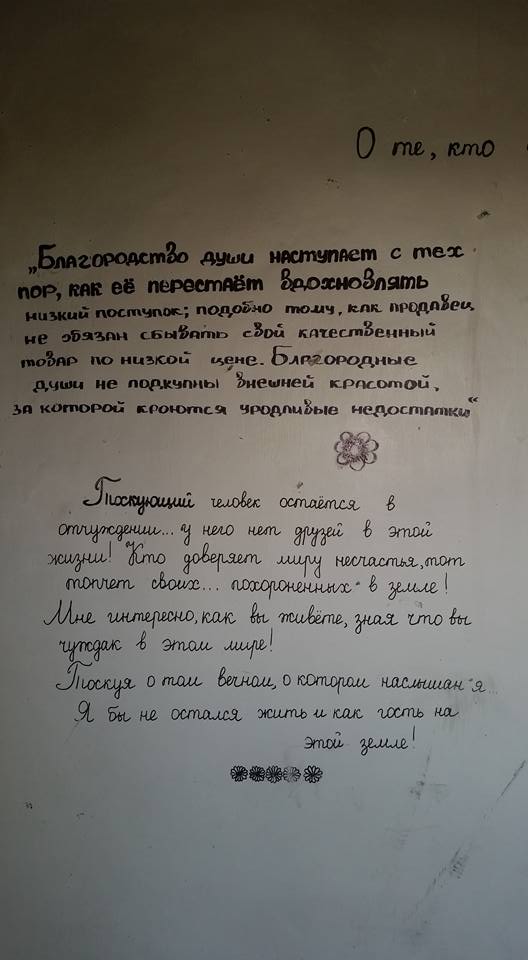 О те, кто
„Благородство души наступает с тех
пор, как её перестаёт вдохновлять
низкий поступок; подобно тому, как продавец
не обязан сбывать свой качественный
товар по низкой цене. Благородные
души не подкупны внешней красотой,
за которой кроются уродливые недостатки“
Тоскующий человек остаётся в
отчуждении... у него нет друзей в этой
жизни! Кто доверяет миру несчастья, тот
топчет своих... похороненных в земле!
Мне интересно, как вы живёте, зная что вы
чуждак в этом мире!
Тоскуя о том вечном, о котором наслышан я...
Я бы не остался жить и как гость на
этой земле!